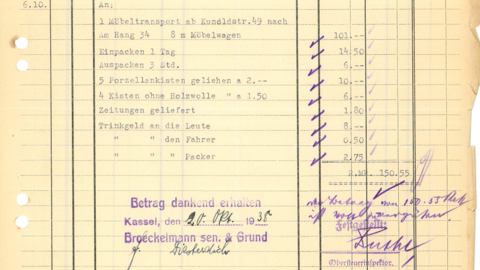 6.10. An:
1 Möbeltransport ab Kundldstr.49 nach
Am Hang 34 8 m Möbelwagen 101.--
Einpacken 1 Tag 14.50
Auspacken 3 Std. 6.--
5 Porzellankisten geliehen a 2.-- 10.--
4 Kisten ohne Holzwolle " a 1.50 6.--
Zeitungen geliefert 1.80
Trinkgeld an die Leute 8.--
" " den Fahrer -.50
" " " Packer 2.75
R.MK. 150.55
Betrag dankend erhalten
Kassel, den 20. Okt. 1938
Broeckelmann sen. & Grund
der Betrag von 150.55
ist
Festgestellt:
Obersteuerinspektor.